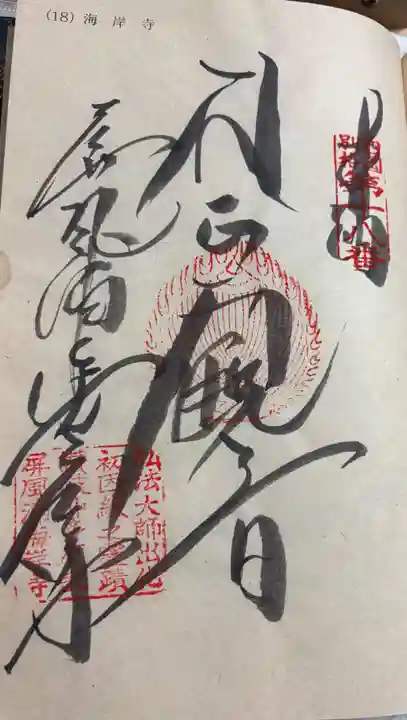 (18) 海岸寺
奉拝
四國別格第十八番
正観音
屏風浦海岸寺
弘法大師出化
初因縁之霊蹟
屏風浦海岸寺